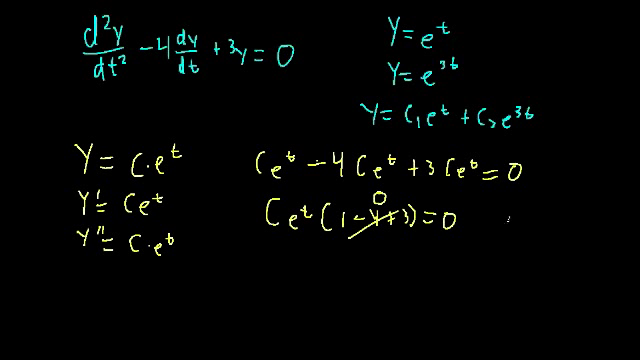 d²y/dt² - 4 dy/dt + 3y = 0
y = e^t
y = e^3t
y = C₁e^t + C₂e^3t
y = C·e^t
y' = Ce^t
y'' = C·e^t
Ce^t - 4Ce^t + 3Ce^t = 0
0
Ce^t(1-4+3) = 0